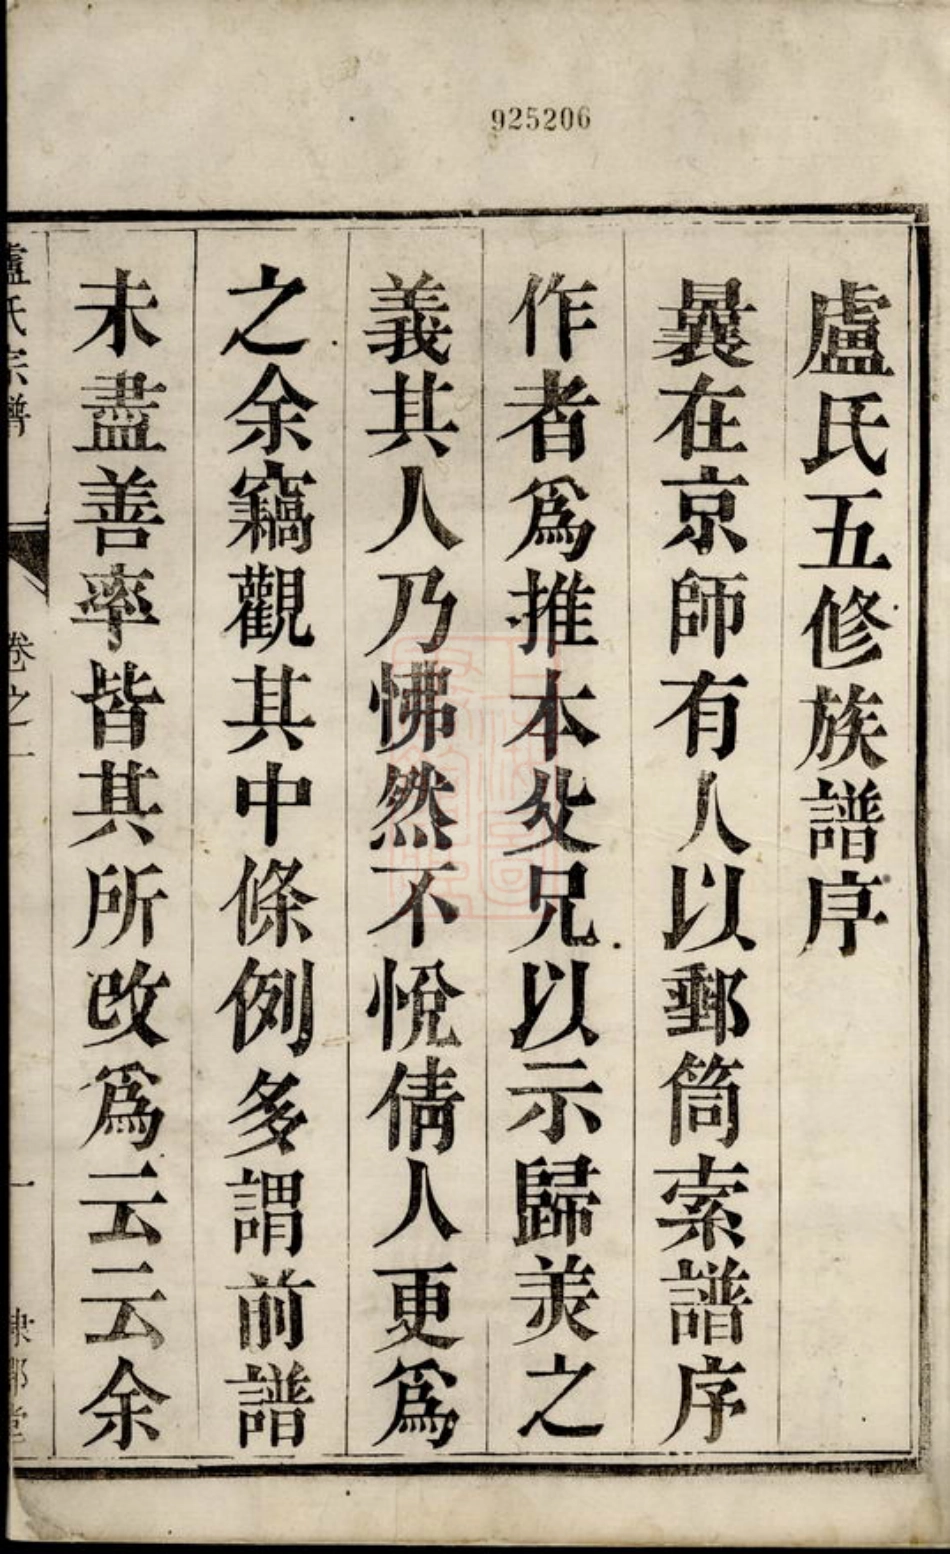 925206
盧氏五修族譜序
曩在京師有人以郵筒索譜序
作者爲推本父兄以示歸美之
義其人乃怫然不悅倩人更爲
之余竊觀其中條例多謂前譜
未盡善率皆其所改爲云云余
盧氏宗譜
卷之一
一